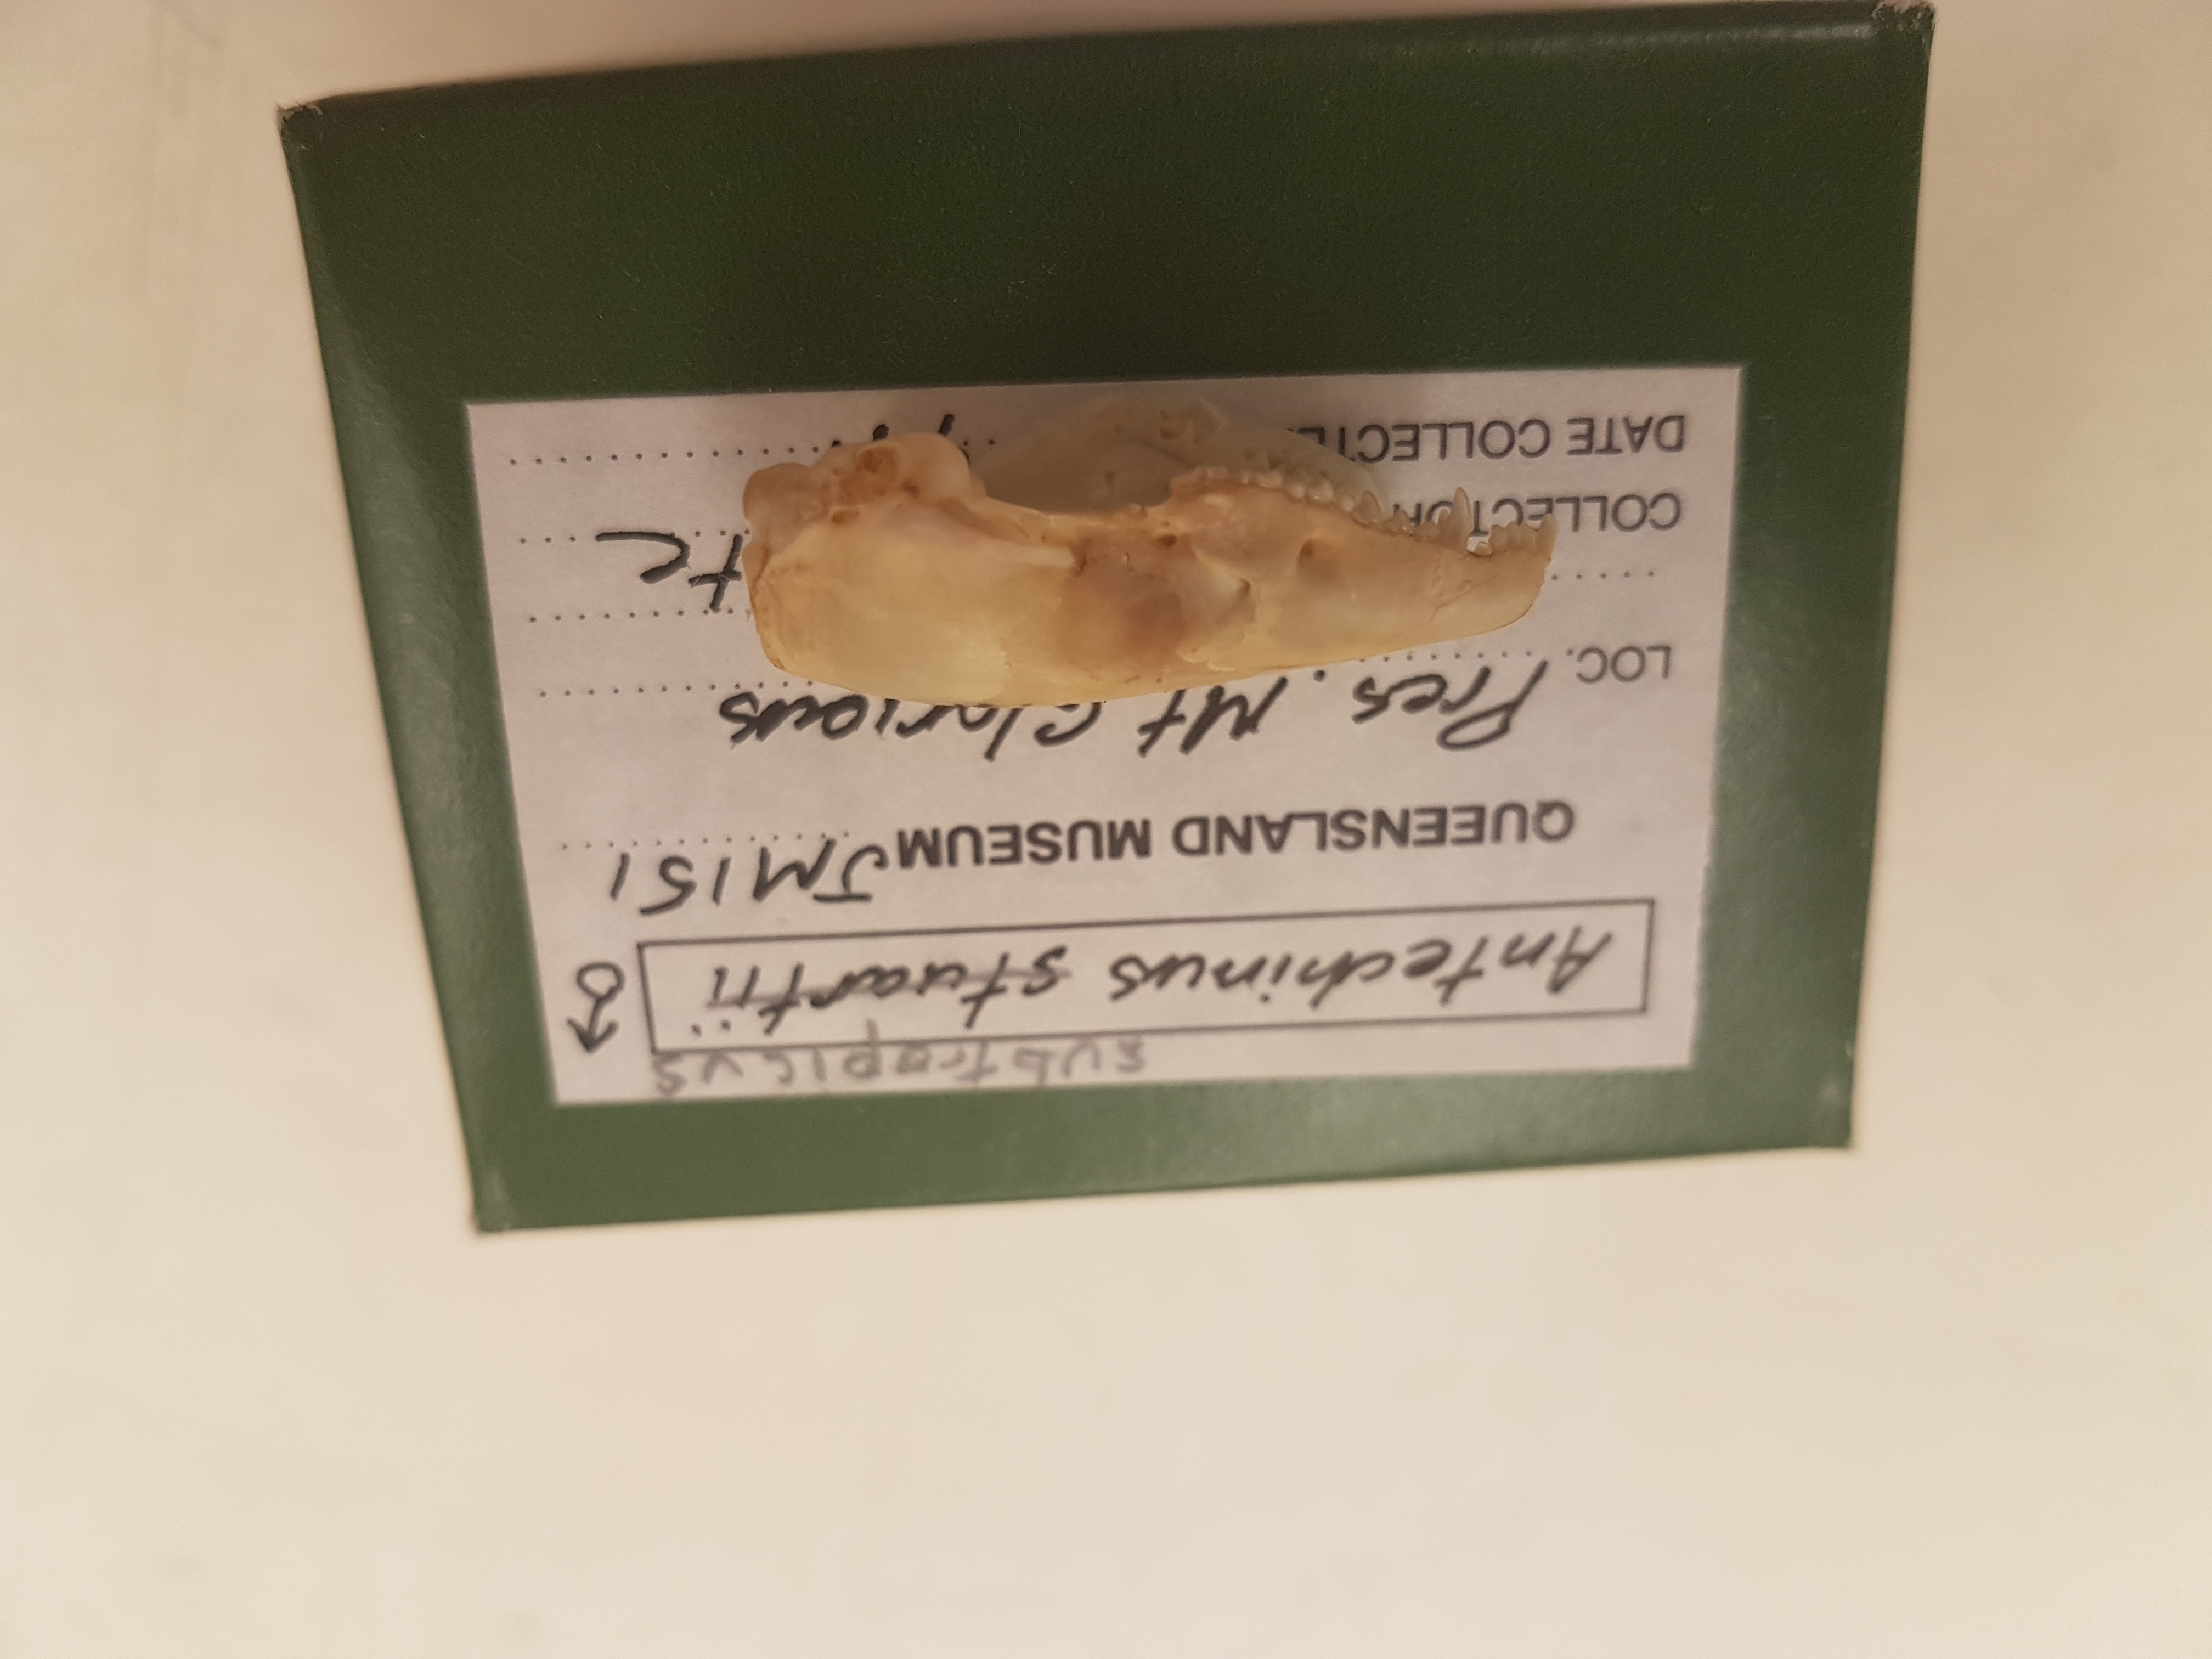 subtropicus
Antechinus stuartii ♂
QUEENSLAND MUSEUM JM151
LOC. Pres. Mt Glorious
COLLECTOR
DATE COLLECTE